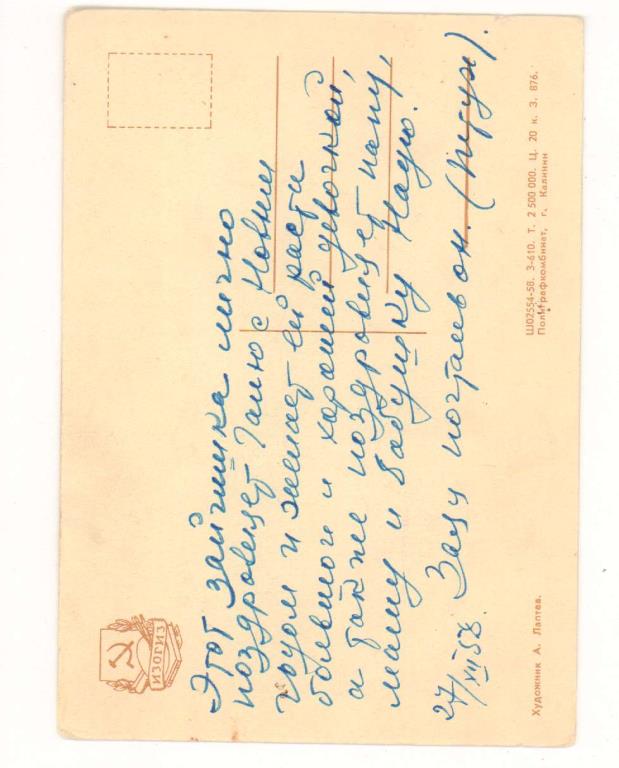 Этот зайчишка лично
поздровяет Танюю с Новым
годом и желает ей рости
большой и харошей девочкой,
а также поздровяет папу,
маму и бабушку Надю.
27/XII 58. Зайц почтальон.
ИЗОГИЗ
Художник А. Лаптев.
Ш02554-58. З-610. Т. 2 500 000. Ц. 20 к. З. 876.
Полиграфкомбинат, г. Калинин